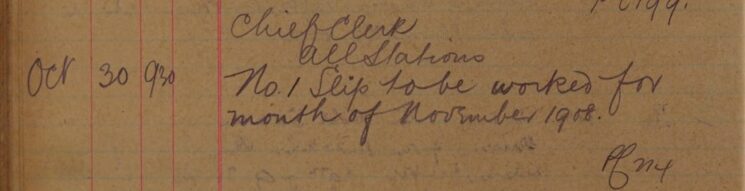 Chief Clerk
All Stations
Oct 30 930 No. 1 Slip to be worked for
month of November 1908.